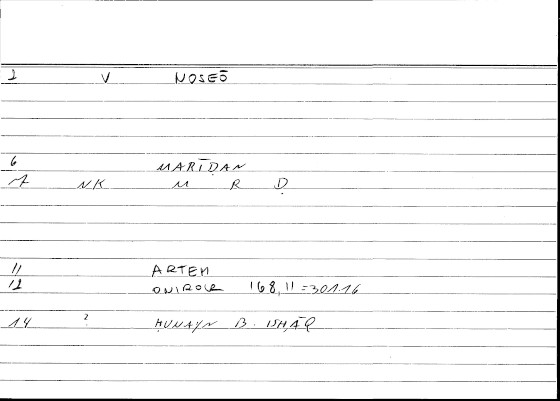 2 V NOSEŌ
6 MARĪḌAN
7 NK M R Ḍ
11 ARTEM
12 ONIROCR 168,11=301.16
14 ? ḤUNAYN B. ISḤĀQ